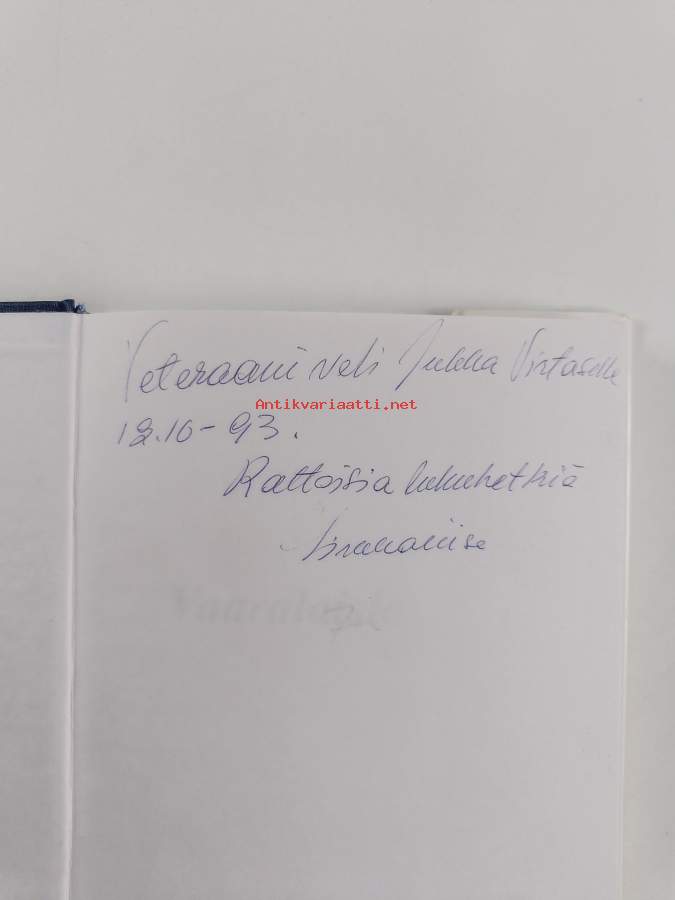 Veteraani veli Jukka Virtaselle
Antikvariaatti.net
12.10-93.
Rattoisia lukuhetkiä